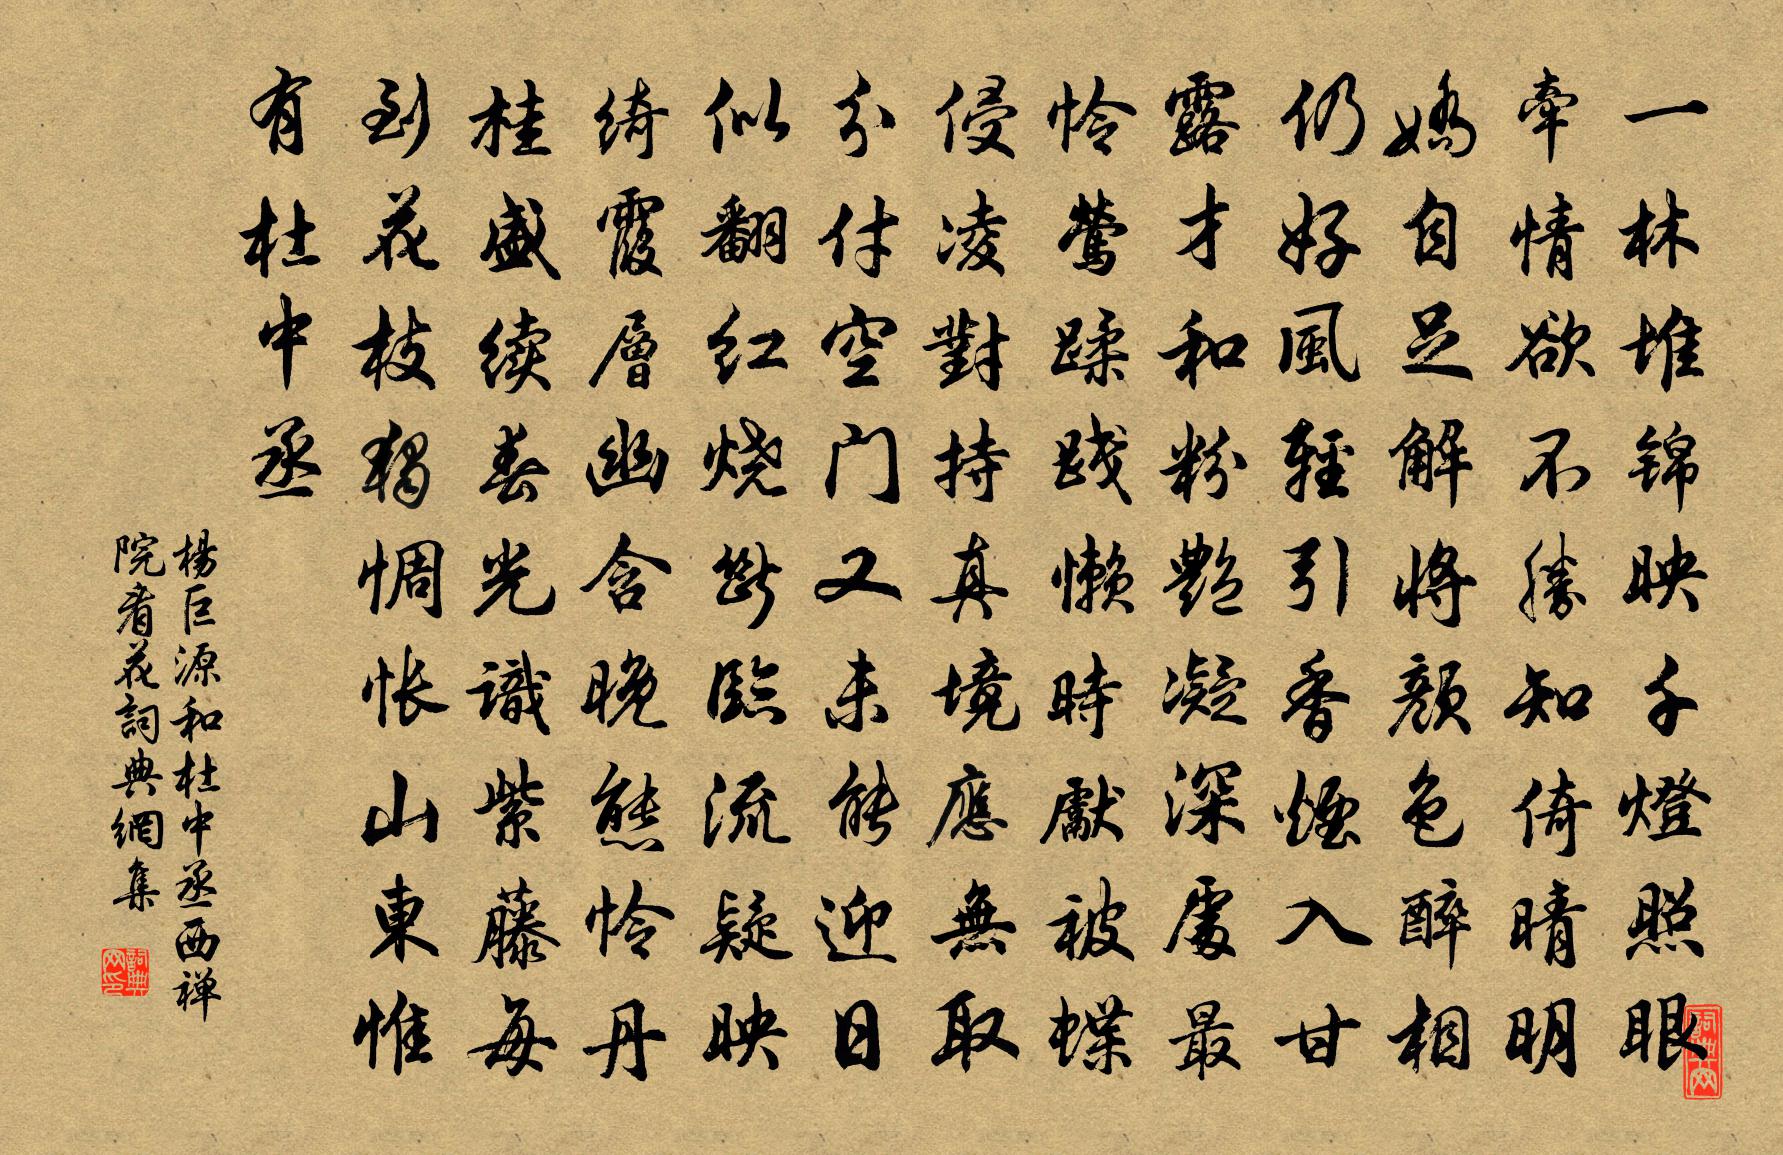 一林堆锦映千燈照眼
牵情欲不勝知倚晴明
嬌自足解將顔色醉相
仍好風輕引香煙入甘
露才和粉艷凝深處最
怜鶯蹂践懒時獻被蝶
侵凌對持真境應無取
分付空门又未能迎日
似翻红烧斷臨流疑映
绮霞層幽含晚態怜丹
桂盛续春光識紫藤每
到花枝獨惆怅山東惟
有杜中丞
楊巨源和杜中丞西禅
院看花詞典網集
詞典网
詞典网印